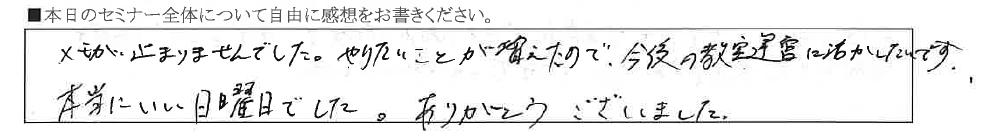 ■本日のセミナー全体について自由に感想をお書きください。
メモが止まりませんでした。やりたいことが増えたので、今後の教室運営に活かしたいです。
本当にいい日曜日でした。ありがとうございました。